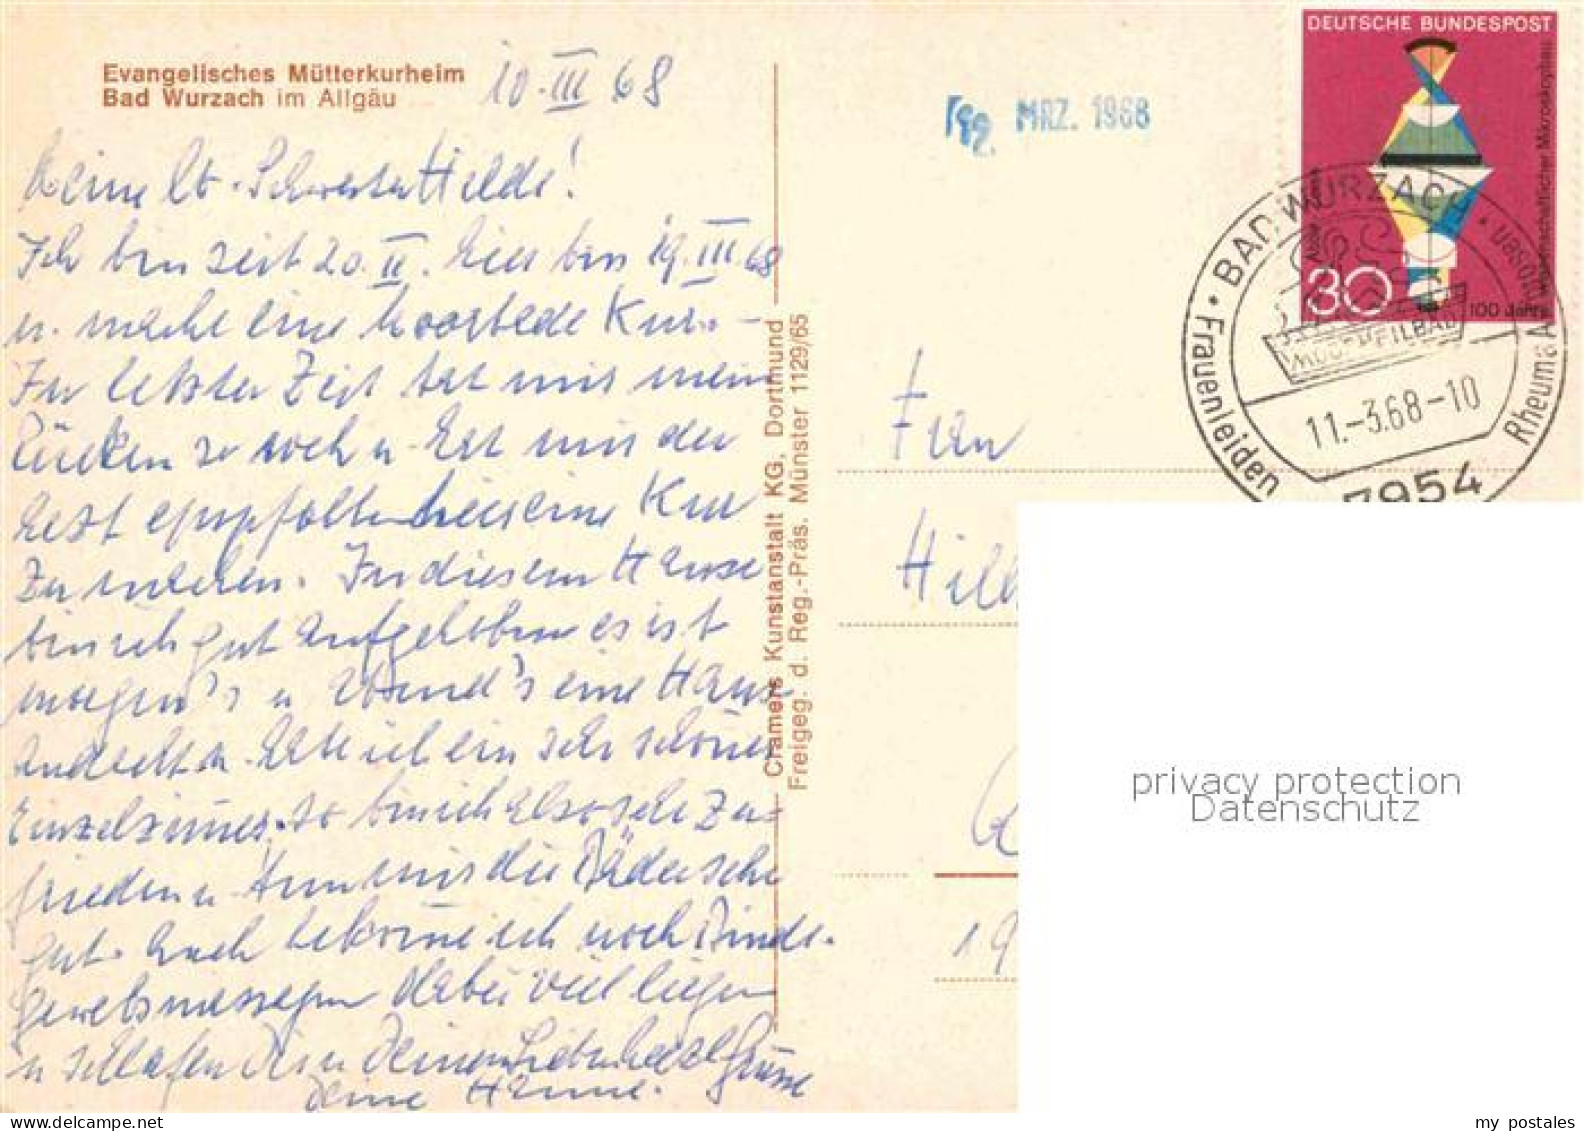 Evangelisches Mütterkurheim
Bad Wurzach im Allgäu
10. III 68
Meine lb. Schwester Hilde!
Ich bin seit 20. II. hier bis 19. III 68
u. mache eine Kur.
In letzter Zeit tat mir mein
Rücken so weh u. hat mir der
Arzt empfohlen hier eine Kur
zu machen. In diesem Hause
bin ich gut aufgehoben es ist
morgen's u Abend's eine Haus
andacht u. habe ich ein sehr schönes
Einzelzimmer. so bin ich also sehr zu=
frieden u. tun mir die Bäder sehr
gut. Auch bekomme ich noch Binde-
gewebsmassagen dabei viel liegen
u schlafen Dir u Deinen Lieben herzl Grüsse
Deine Hanne.
Cramers Kunstanstalt KG, Dortmund
Freigeg. d. Reg.-Präs. Münster 1129/65
MRZ. 1968
DEUTSCHE BUNDESPOST
30
100 Jahre wissenschaftlicher Mikroskopbau
BAD WURZACH
MOORHEILBAD
11.-3.68-10
7954
Frauenleiden
Rheuma
Frau
Hil
19
privacy protection
Datenschutz
my postales